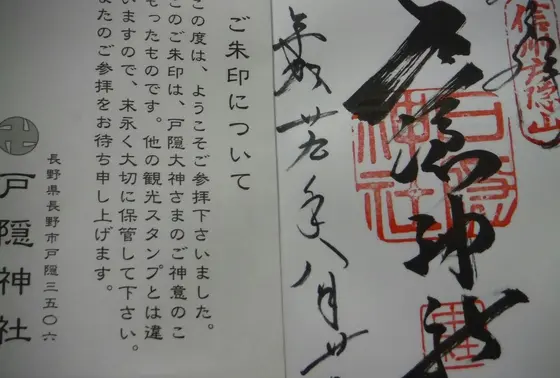 信州戸隠山
戸隠神社
戸隠神社
平成廿五年八月廿
ご朱印について
この度は、ようこそご参拝下さいました。
このご朱印は、戸隠大神さまのご神意のこ
もったものです。他の観光スタンプとは違
いますので、末永く大切に保管して下さい。
またのご参拝をお待ち申し上げます。
長野県長野市戸隠三五〇六
卍戸隠神社